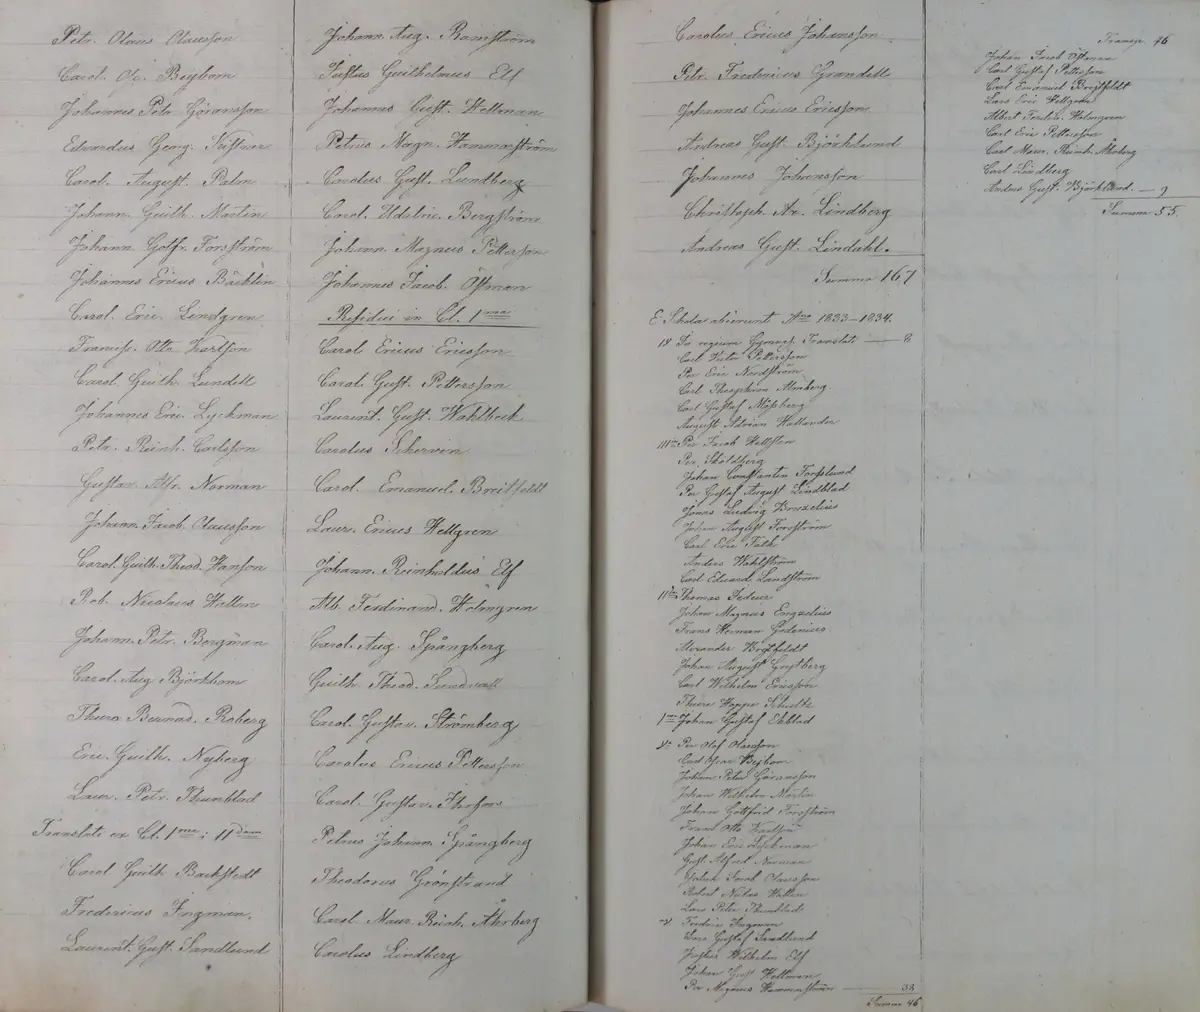 Petr. Olaus Olausson
Carol. Osc. Beijbom
Johannes Petr. Göransson
Edvardus Georg. Küstner
Carol. August. Palm
Johann. Guilh. Martin
Johann. Gottfr. Forsström
Johannes Ericus Bäcklin
Carol. Eric. Lindgren
Francisc. Otto Karlson
Carol. Guilh. Lundell
Johannes Eric. Lyckman
Petr. Reinh. Carlsson
Gustav. Alfr. Norman
Johann. Jacob. Olausson
Carol. Guilh. Theod. Hanson
Rob. Nicolaus Hallen
Johann. Petr. Bergman
Carol. Aug. Björkbom
Thure Bernad. Roberg
Eric. Guilh. Nyberg
Laur. Petr. Thunblad
Translati ex Cl. 1ma i IIdam
Carol Guilh Backstedt
Fredericus Ingman.
Laurent. Gust. Sandlund
Johann. Aug. Ramström
Justus Guilhelmus Elf
Johannes Gust. Hellman
Petrus Magn. Hammarström
Carolus Gust. Lundberg
Carol. Udalric. Bergström
Johann Magnus Pettersson
Johannes Jacob. Östman
Residui in Cl. 1ma
Carol Ericus Ericsson
Carol. Gust. Pettersson
Laurent. Gust. Wahlbeck
Carolus Scherwin
Carol. Emanuel. Breitfeldt
Laur. Ericus Hellgren
Johann. Reinholdus Elf
Alb. Ferdinand. Holmgren
Carol. Aug. Spångberg
Guilh. Theod. Sundvall
Carol. Gustav. Strömberg
Carolus Ericus Pettersson
Carol. Gustav.
Petrus Johann. Spångberg
Theodorus Grönstrand
Carol. Maur. Reinh. Åhrberg
Carolus Lindberg
Carolus Ericus Johansson
Petr. Fredericus Grandell
Johannes Ericus Ericsson
Andreas Gust. Björklund
Johannes Johansson
Christoph. Ar. Lindberg
Andreas Gust. Lindahl.
Summa 167
E Schola abierunt Ano 1833–1834.
Ad regium Gymnas. Translati — 8
Carl Victor Pettersson
Per Eric Nordström
Carl Theophron Monberg
Carl Gustaf Mossberg
August Adrian Hallander
Per Jacob Hellsten
Per Sköldberg
Johan Constantin Forsslund
Per Gustaf August Lindblad
Jonas Ludvig Brozelius
Johan August Forsström
Carl Eric Falk
Anders Wahlström
Carl Eduard Landström
Thomas Fedeur
Johan Magnus Engzelius
Frans Herman Godenius
Alexander Breitfeldt
Johan August Gristberg
Carl Wilhelm Ericsson
Thure Hoppe Schultz
1ma Johan Gustaf Ekblad
Per Olof Olausson
Carl Oscar Beijbom
Johan Peter Göransson
Johan Wilhelm Martin
Johan Gottfrid Forsström
Frans Otto Karlson
Johan Eric Lyckman
Gust. Alfred Norman
Johan Jacob Olausson
Robert Niclas Hallen
Lars Peter Thunblad
Fredric Ingman
Lars Gustaf Sandlund
Justus Wilhelm Elf
Johan Gust Hellman
Per Magnus Hammarström — 38
Summa 46
Transp. 46
Johan Jacob Östman
Carl Gustaf Pettersson
Carl Emanuel Breitfeldt
Lars Eric Hellgren
Albert Ferdin. Holmgren
Carl Eric Pettersson
Carl Maur. Reinh. Åhrberg
Carl Lindberg
Anders Gust. Björklund. — 9
Summa 55.